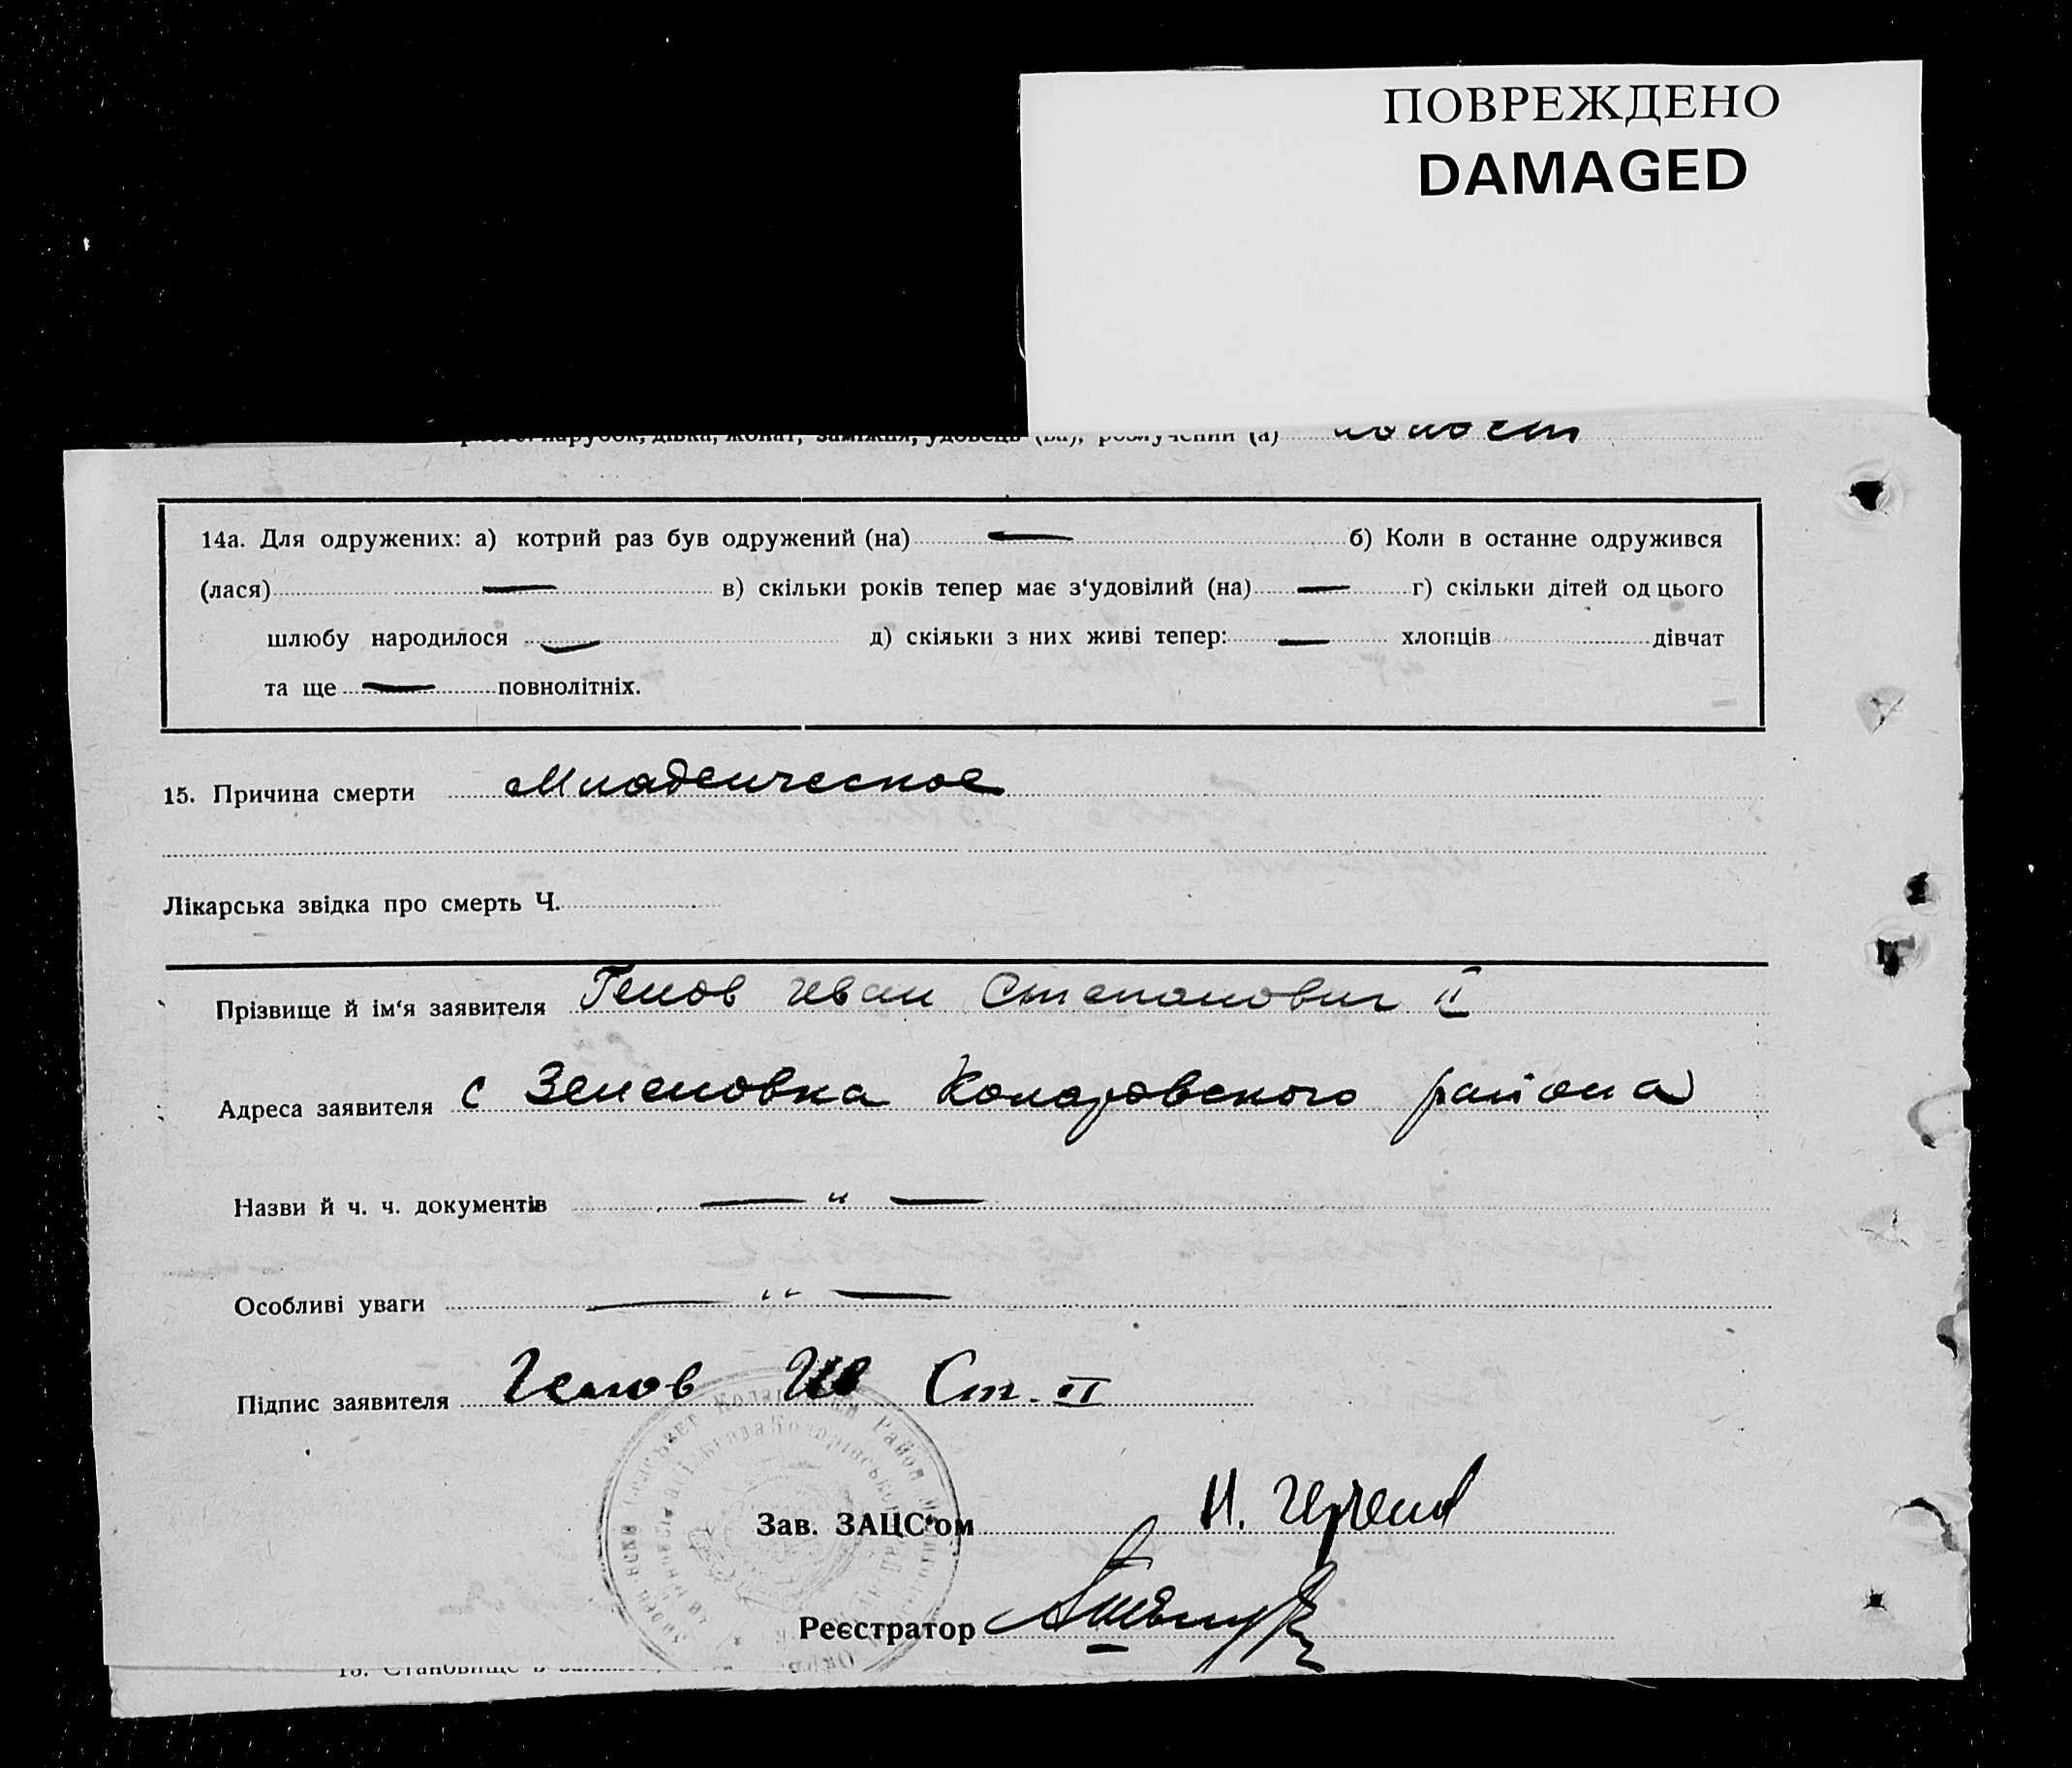 ПОВРЕЖДЕНО
DAMAGED
парубок, дівка, жонат, заміжня, удовець (ва), розлучений (а) холост
14а. Для одружених: а) котрий раз був одружений (на) — б) Коли в останнє одружився
(лася) — в) скільки років тепер має з‘удовілий (на) — г) скільки дітей од цього
шлюбу народилося — д) скільки з них живі тепер: — хлопців дівчат
та ще — повнолітніх.
15. Причина смерти Младенческое
Лікарська звідка про смерть Ч.
Прізвище й ім‘я заявителя Генов Иван Степанович II
Адреса заявителя с Зеленовка Коларовского района
Назви й ч. ч. документів — „ —
Особливі уваги — „ —
Підпис заявителя Генов Ив Ст. II
Зав. ЗАЦС‘ом Н.
Реєстратор